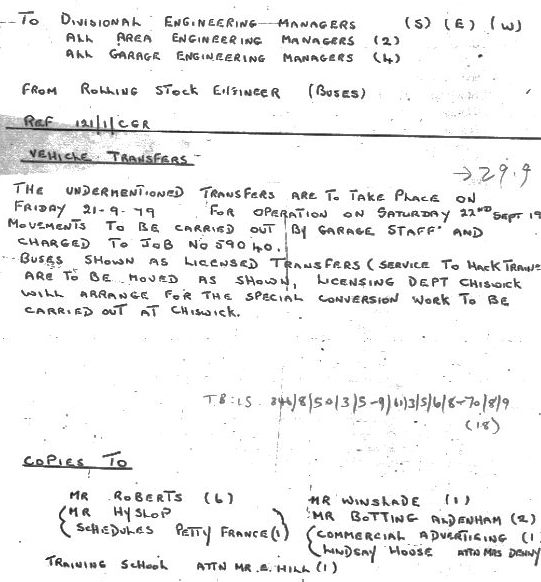 To Divisional Engineering Managers (S) (E) (W)
All Area Engineering Managers (2)
All Garage Engineering Managers (4)
From Rolling Stock Engineer (Buses)
Ref 121/1/CGR
Vehicle Transfers
→ 29.9
The undermentioned transfers are to take place on
Friday 21-9-79 for operation on Saturday 22nd Sept 19
Movements to be carried out by garage staff and
charged to Job No 59040.
Buses shown as licensed transfers (service to hack train
are to be moved as shown, licensing dept Chiswick
will arrange for the special conversion work to be
carried out at Chiswick.
T.B: 1S /8/50/3/5-9/61/3/5/6/8-70/8/9
(18)
Copies To
Mr Roberts (6) Mr Winslade (1)
(Mr Hyslop Mr Botting Aldenham (2)
(Schedules Petty France (1) (Commercial Advertising (1)
(Lindsay House attn Mrs Denny
Training School attn Mr. E. Hill (1)